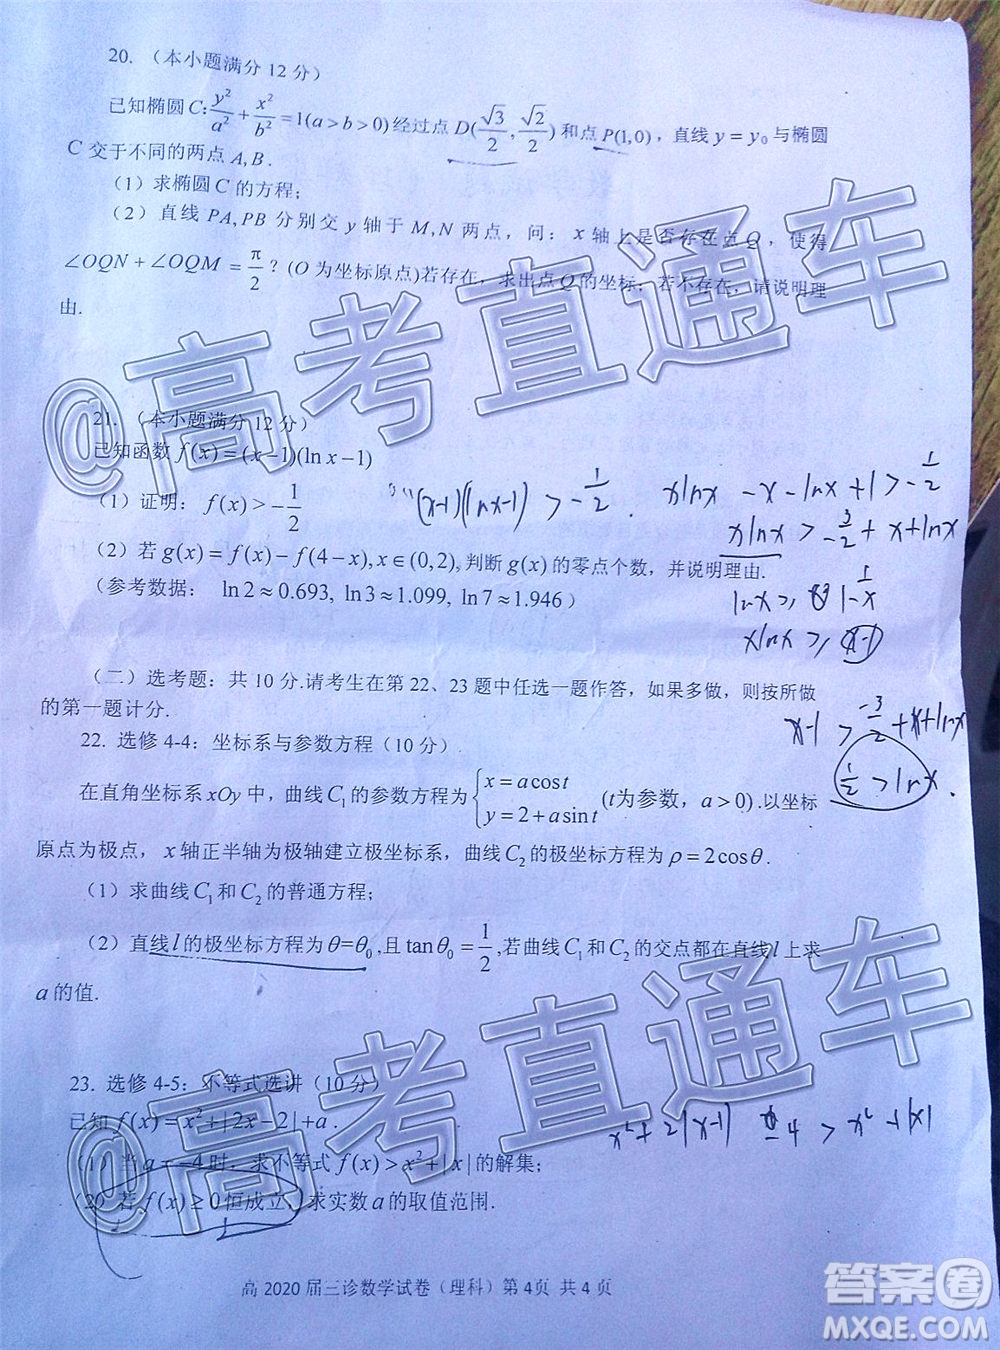 20. (本小题满分12分)
已知椭圆C: y²/a² + x²/b² = 1(a>b>0)经过点 D(√3/2, √2/2) 和点 P(1,0)，直线 y=y₀ 与椭圆
C 交于不同的两点 A,B.
(1) 求椭圆 C 的方程;
(2) 直线 PA,PB 分别交 y 轴于 M,N 两点，问: x 轴上是否存在点 Q，使得
∠OQN+∠OQM = π/2 ? (O 为坐标原点)若存在，求出点 Q 的坐标; 若不存在，请说明理
由.
21. (本小题满分12分)
已知函数 f(x)=(x−1)(ln x−1)
(1) 证明: f(x)>−1/2
(x-1)(lnx-1) > -1/2 .
xlnx -x-lnx+1>-1/2
xlnx > -3/2 + x+lnx
(2) 若 g(x)=f(x)−f(4−x),x∈(0,2),判断 g(x) 的零点个数，并说明理由.
(参考数据: ln2≈0.693, ln3≈1.099, ln7≈1.946)
lnx ≥ 1-1/x
xlnx ≥ x-1
(二) 选考题: 共10分.请考生在第22、23题中任选一题作答，如果多做，则按所做
的第一题计分.
x-1 > -3/2 +x+lnx
1/2 >lnx .
22. 选修4-4: 坐标系与参数方程(10分)
在直角坐标系 xOy 中，曲线 C₁ 的参数方程为 { x=acost
y=2+asint (t为参数，a>0) .以坐标
原点为极点，x 轴正半轴为极轴建立极坐标系，曲线 C₂ 的极坐标方程为 ρ=2cosθ.
(1) 求曲线 C₁ 和 C₂ 的普通方程;
(2) 直线 l 的极坐标方程为 θ=θ₀,且 tanθ₀=1/2,若曲线 C₁ 和 C₂ 的交点都在直线 l 上求
a 的值.
23. 选修4-5: 不等式选讲(10分)
已知 f(x)=x²+|2x−2|+a.
x²+2|x-1| -4 > x²+|x|
(1) 当 a=−4 时，求不等式 f(x)>x²+|x| 的解集;
(2) 若 f(x)≥0 恒成立，求实数 a 的取值范围.
高2020届三诊数学试卷(理科) 第4页 共4页
@高考直通车
@高考直通车
答案圈
MXQE.COM